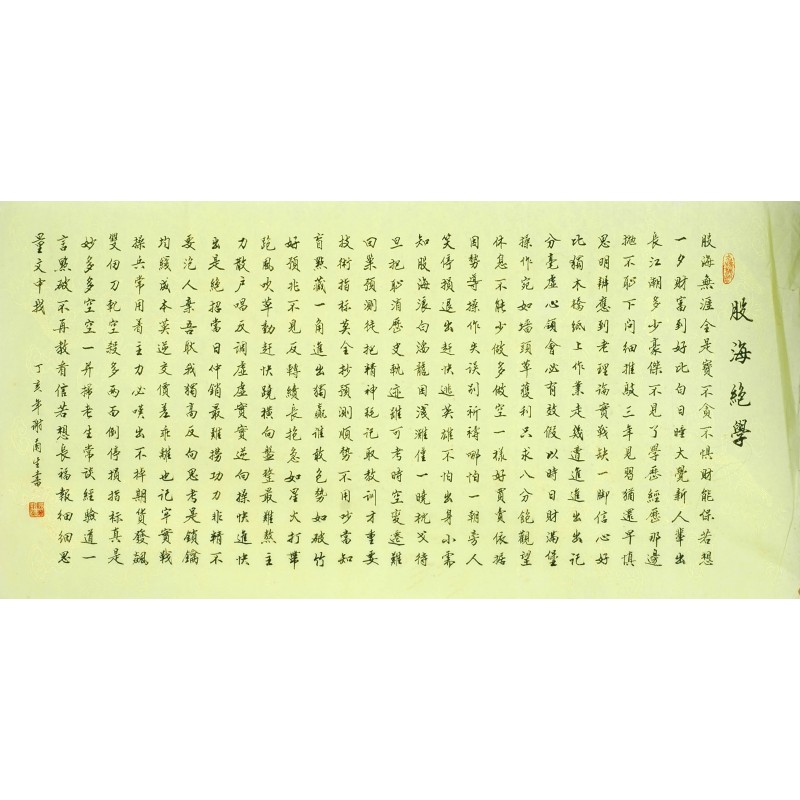 股海絕學
股海無涯全是寶不貪不懼財能保若想
一夕財富到好比白日睡大覺新人輩出
長江潮多少豪傑不見了學歷經歷那邊
拋不恥下問細推敲三年見習猶還早慎
思明辨應到老理論實戰缺一腳信心好
比獨木橋紙上作業走幾遭進進出出記
分毫虛心領會必有效假以時日財滿堡
操作宛如墙頭草獲利只求八分飽觀望
休息不能少做多做空一樣好買賣依据
因势導操作失误别祈禱哪怕一朝旁人
笑停损退出赶快逃英雄不怕出身小需
知股海浪向滔龍困浅灘僅一晚枕戈待
旦把恥消歷史軌迹雖可考時空变遷難
回巢預測徒把精神耗記取教训才重要
技術指标莫全抄预測順势不用吵當知
盲點藏一角進出獨贏谁敢色势如破竹
好预兆不見反轉續長抱急如星火打草
跑風吹草動赶快跷橫向盤整最難熬主
力散户唱反調虛虛實實逆向操快進快
出是絕招當日仲銷最難撈功力非精不
委范人棄吾取我獨高反向思考是鎖鑰
均綫成本莫逆交價差乖離也记牢實戰
操兵常用着主力必嘆出不掉期货發飆
雙面刀軋空殺多兩面倒停損指标真是
妙多多空空一并掃老生常谈经验道一
言點破不再教看信若想長福報细细思
量文中我
丁亥年謝甫生書